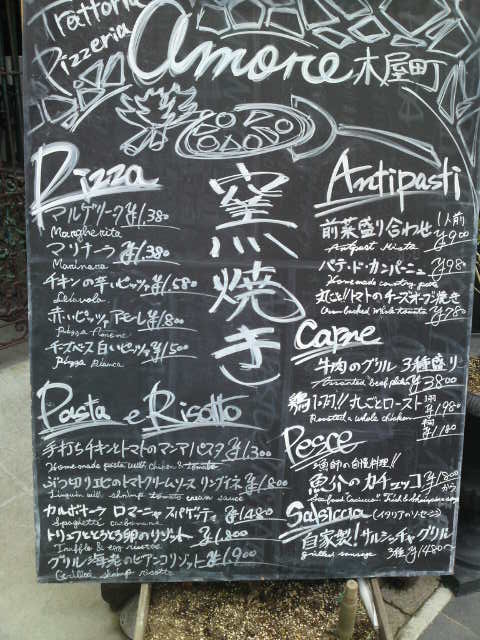 Trattoria
Pizzeria
amore 木屋町
窯焼き
Pizza
マルゲリータ ¥1,380
Margherita
マリナーラ ¥1,380
Marinara
チキンの辛いピッツァ ¥1,580
Diavola
赤いピッツァ アモーレ ¥1,800
Pizza Amore
チーズベース 白いピッツァ ¥1,500
Pizza Bianca
Pasta e Risotto
手打ちチキンとトマトのマニアパスタ ¥1,300
Homemade pasta with chicken & tomato
ぶつ切りエビのトマトクリームソース リングイネ ¥1,800
Linguin with shrimp tomato cream sauce
カルボナーラ ロマーニャ スパゲティ ¥1,480
Spaghetti carbonara
トリュフととろとろ卵のリゾット ¥1,800
Truffle & egg risotto
グリル海老のビアンコリゾット ¥1,900
Grilled shrimp risotto
Antipasti
前菜盛り合わせ 1人前 ¥900
Antipast Mista
パテ・ド・カンパーニュ ¥980
Homemade country pate
丸ごと!!トマトのチーズオーブン焼き ¥780
Oven baked whole tomato
Carne
牛肉のグリル 3種盛り
Assorted beef plate ¥3800
鶏1羽!!丸ごとロースト 1羽 ¥1,980
Roasted a whole chicken ¥1,180
Pesce
漁師の自慢料理!!
魚介のカチュッコ ¥1,800から
Seafood "caciucco"
Salsiccia (イタリアのソーセージ)
自家製!サルシッチャグリル
grilled sausage 3種 ¥1480〜